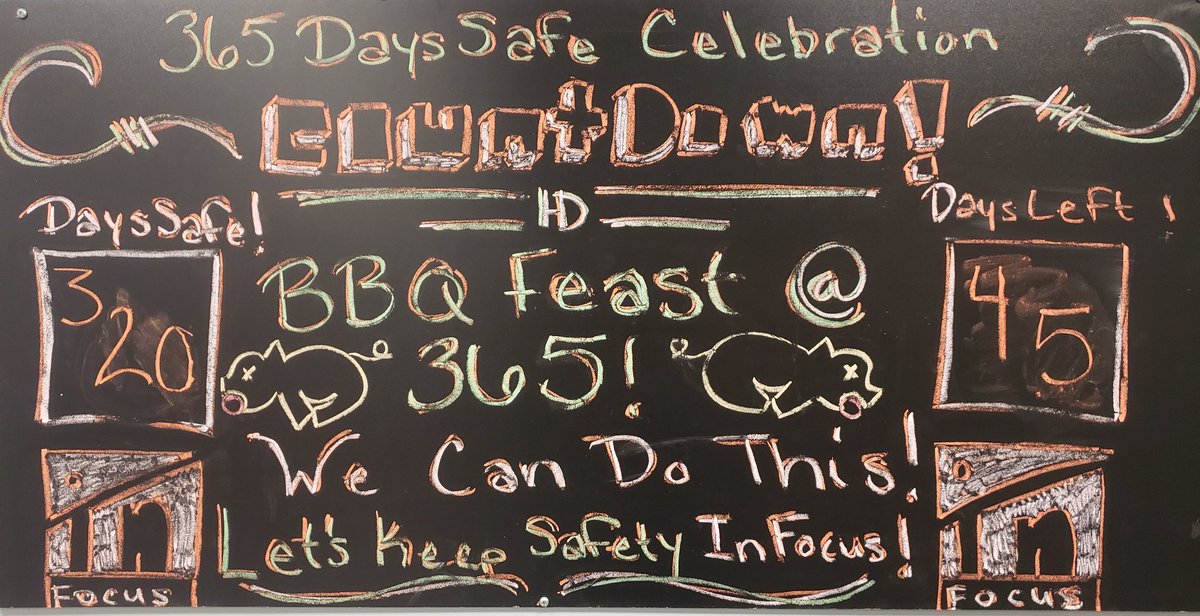 365 Days Safe Celebration
CountDown!
HD
Days Safe!
Days Left!
320
45
BBQ Feast @
365!
We Can Do This!
Let's Keep Safety In Focus!
in
Focus
in
Focus